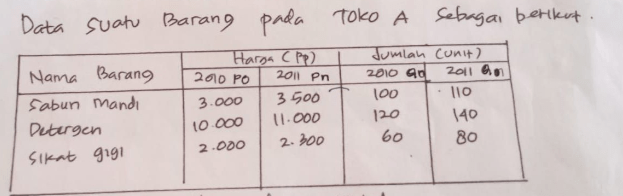 Data suatu Barang pada Toko A sebagai berikut.
Nama Barang Harga (Pp) Jumlah (unit)
2010 Po 2011 Pn 2010 Qo 2011 Qn
Sabun Mandi 3.000 3.500 100 110
Detergen 10.000 11.000 120 140
Sikat gigi 2.000 2.300 60 80